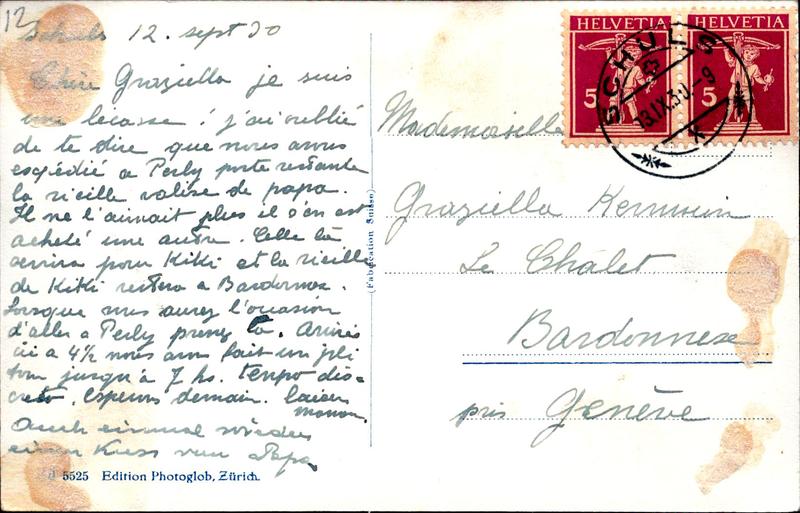 12
Schuls 12. sept 30
Chère Graziella je suis
une bécasse! j'ai oublié
de te dire que nous avons
expédié a Perly poste restante
la vieille valise de papa.
Il ne l'aimait plus il s'en est
acheté une autre. Celle là
servira pour Kiki et la vieille
de Kiki restera a Bardonnex.
Lorsque vous aurez l'occasion
d'aller a Perly prenez la. Arrivés
ici a 4½ nous avons fait un joli
tour jusqu'à 7 hs. tempo dis-
creto. Espérons demain. Baisers
maman.
Auch einmal wieder
einen Kuss von Papa
5525 Edition Photoglob, Zürich.
(Fabrication Suisse)
HELVETIA HELVETIA
5 5
SCHULS
13.IX.30.-9
Mademoiselle
Graziella
Le Châlet
Bardonnex
près Genève